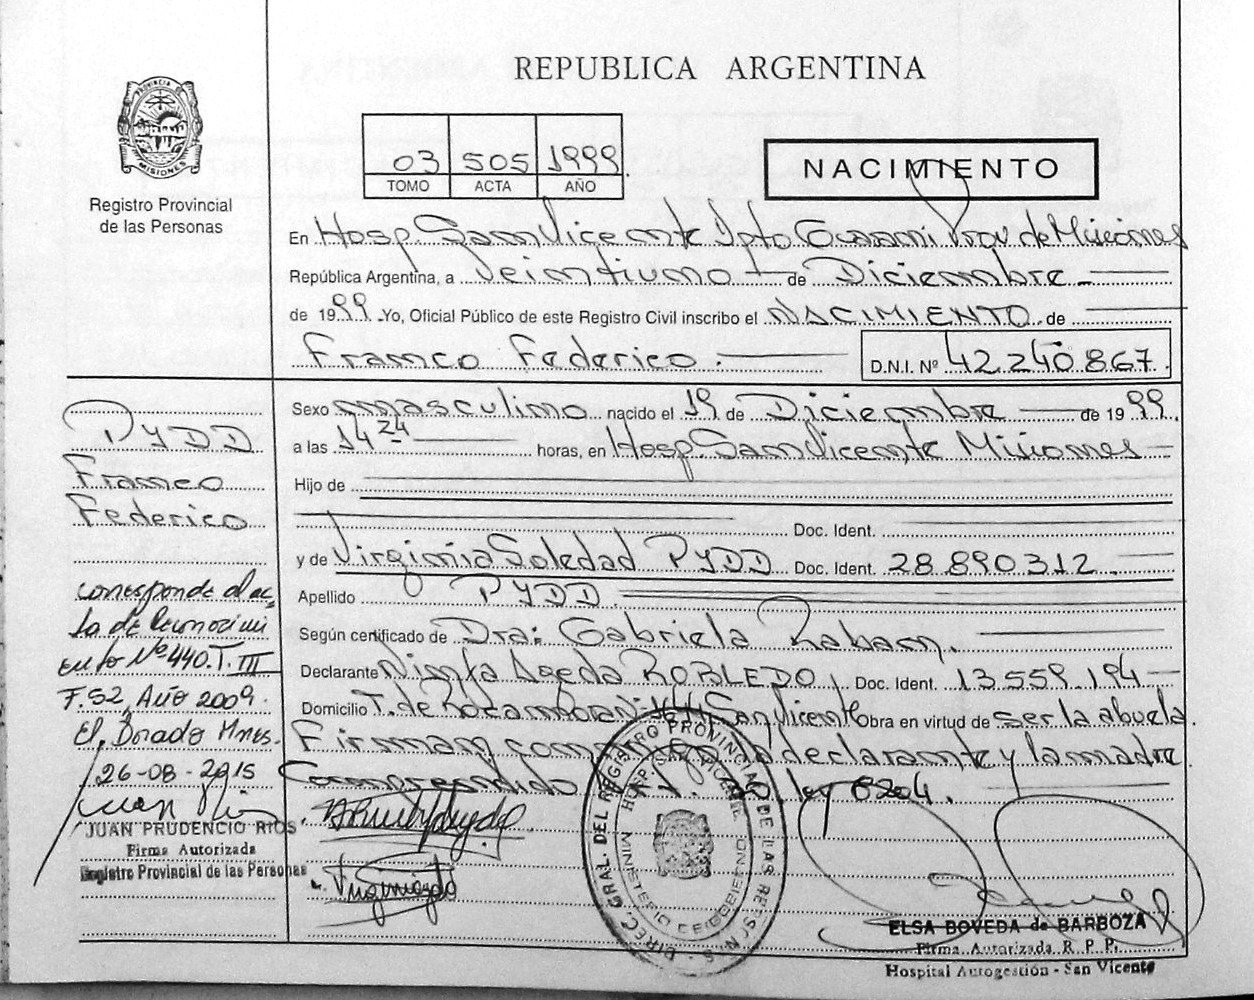 REPUBLICA ARGENTINA
PROVINCIA DE
MISIONES
Registro Provincial
de las Personas
03 505 1999
TOMO ACTA AÑO
NACIMIENTO
En Hosp. San Vicente Dpto Guaraní Prov. de Misiones
República Argentina, a Veintiuno de Diciembre
de 1999 Yo, Oficial Público de este Registro Civil inscribo el NACIMIENTO de
Franco Federico. D.N.I. Nº 42.240.867.
Sexo masculino nacido el 19 de Diciembre de 1999.
a las 14 24 horas, en Hosp. San Vicente Misiones
Hijo de
Doc. Ident.
y de Virginia Soledad PYDD Doc. Ident. 28.890.312
Apellido PYDD
Según certificado de Dra: Gabriela Rabam.
Declarante Ninfa Ageda ROBLEDO Doc. Ident. 13559.194
Domicilio T. de Rocamora San Vicente Obra en virtud de ser la abuela.
Firman como la declarante y la madre
Comprendido ley 8204.
PYDD
Franco
Federico
corresponde al ac-
ta de Reconocimi
ento Nº 440. T. III
F. 52, Año 2009.
El Dorado Mnes.
26-08-2015
JUAN PRUDENCIO RIOS
Firma Autorizada
Registro Provincial de las Personas
DIREC. GRAL. DEL REGISTRO PROVINCIAL DE LAS PERSONAS
HOSP. SAN VICENTE
MINISTERIO DE GOBIERNO
ELSA BOVEDA de BARBOZA
Firma Autorizada R. P. P.
Hospital Autogestión - San Vicente